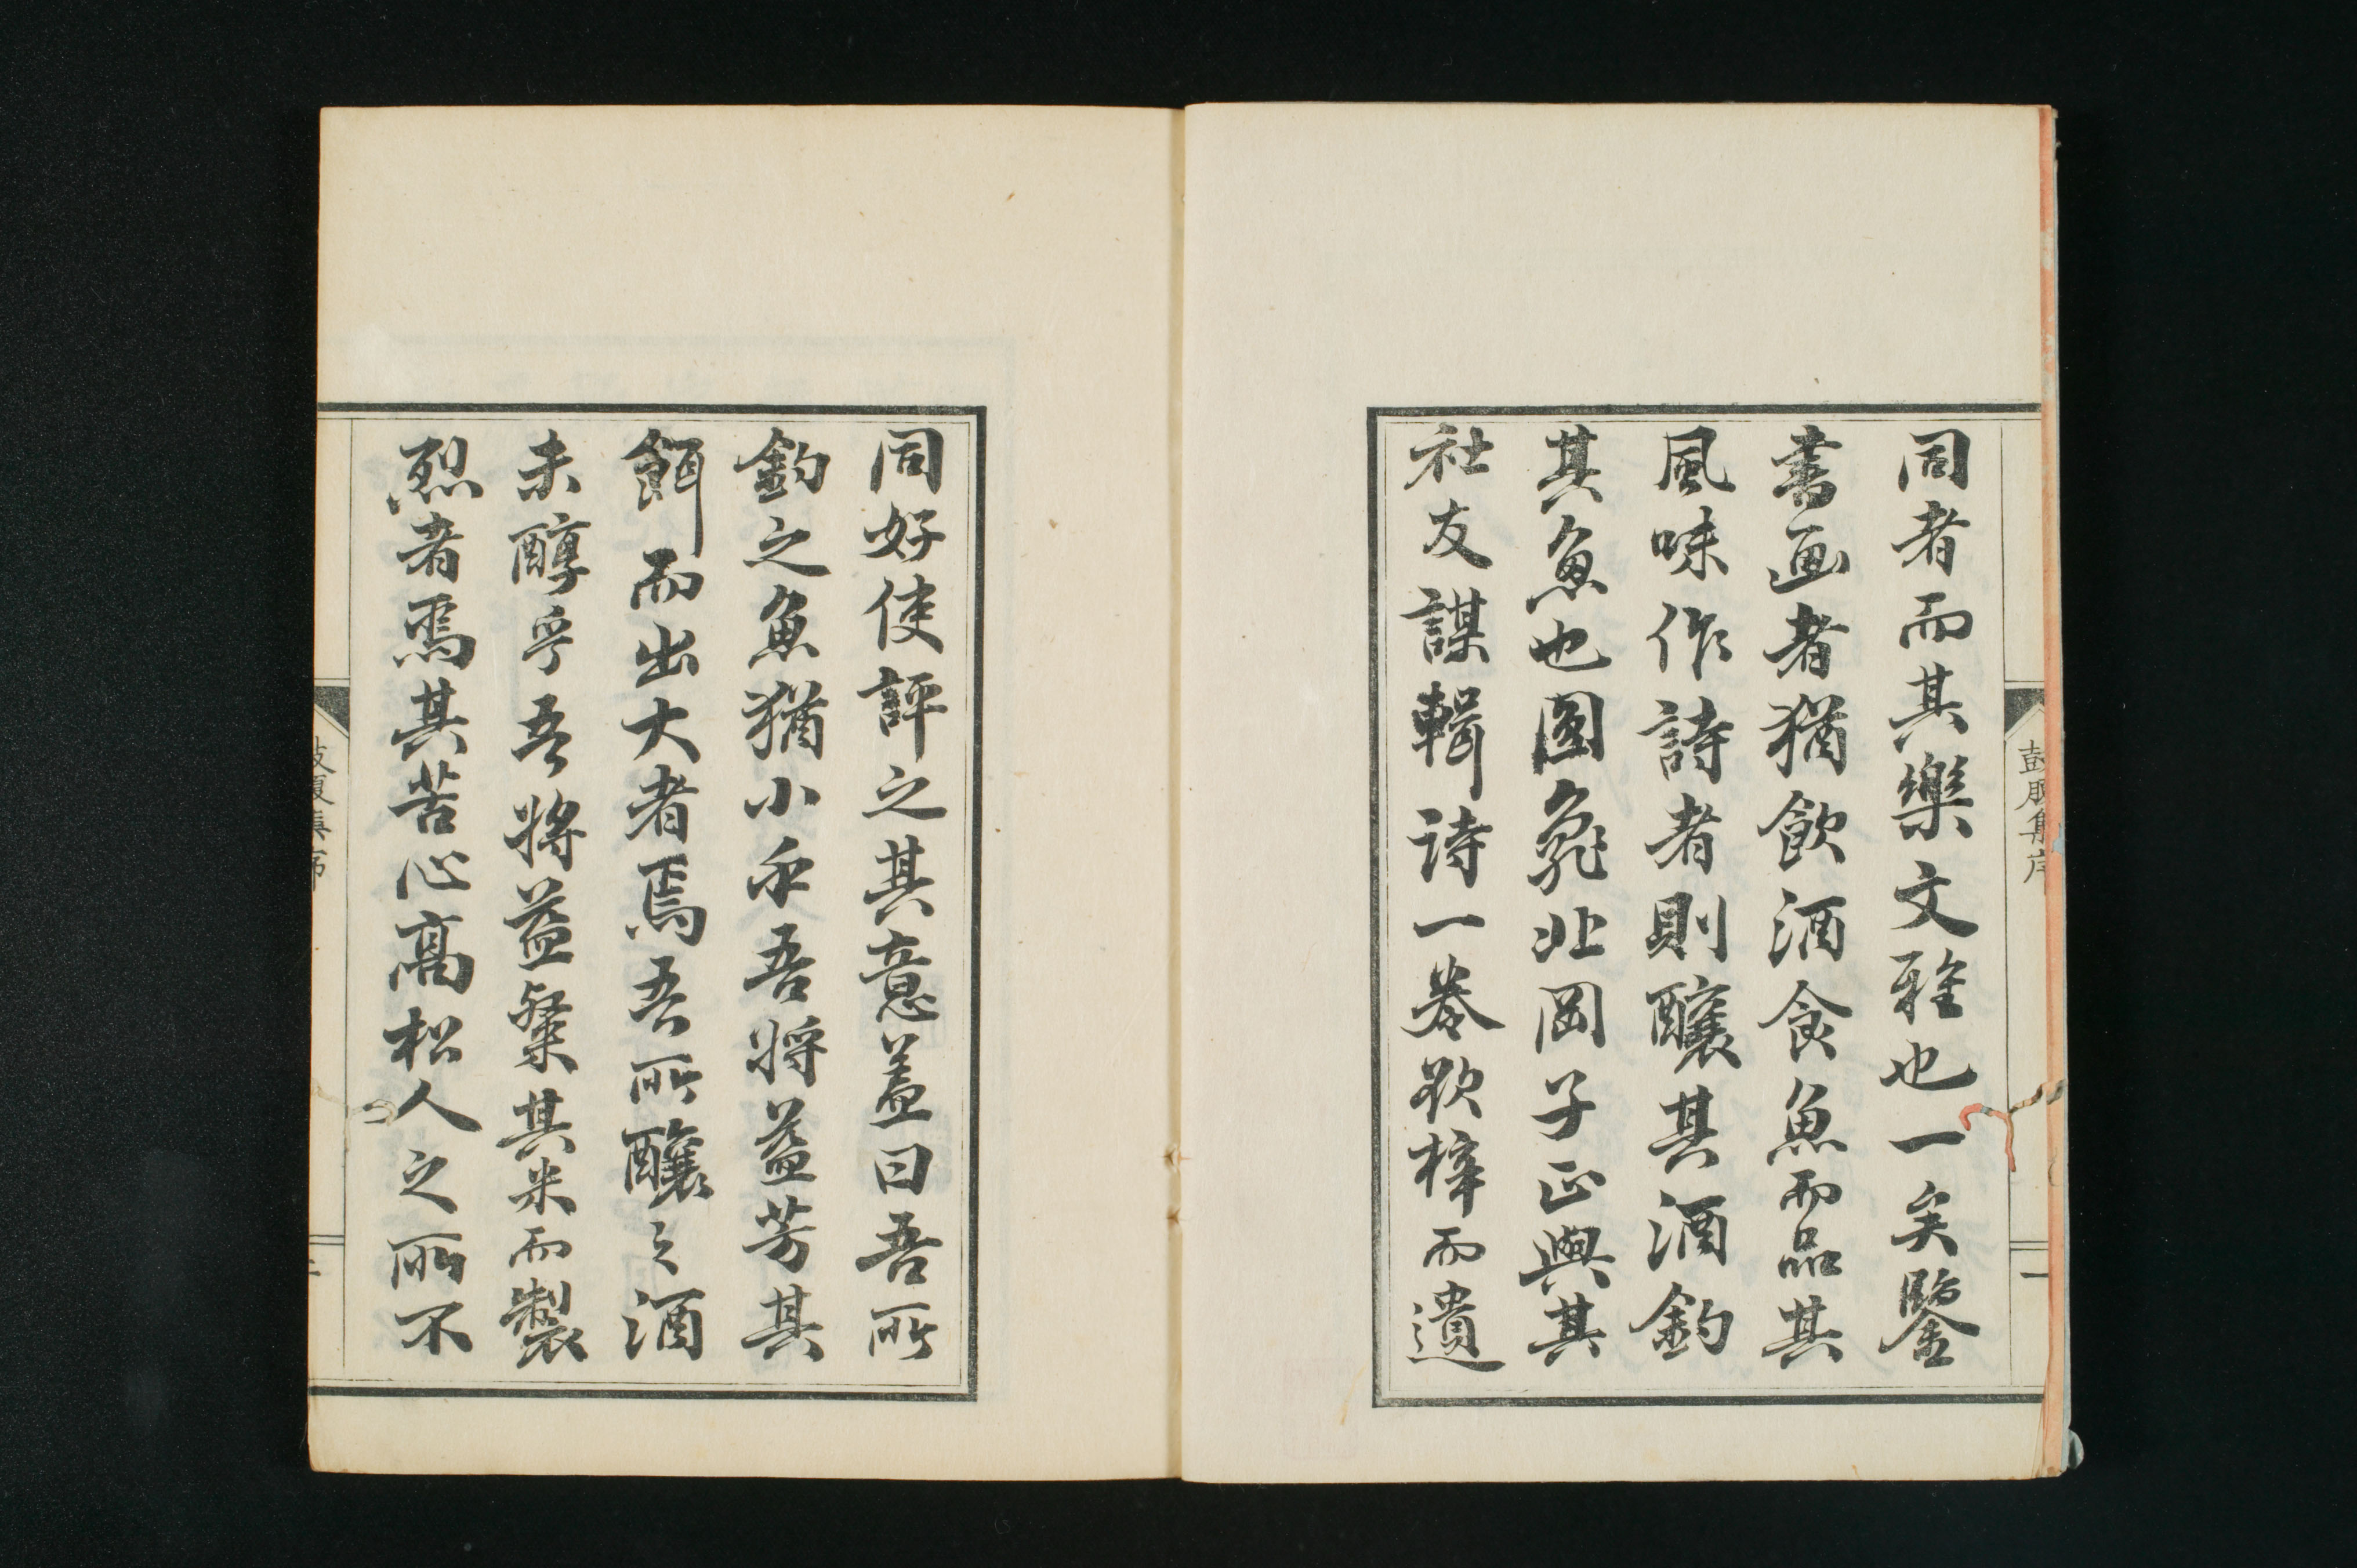 同者而其樂文雅也一矣鑒
書画者猶飲酒食魚而品其
風味作詩者則釀其酒釣
其魚也图龜北岡子正與其
社友謀輯詩一卷欲梓而遺
同好使評之其意盖曰吾所
釣之魚猶小乎吾將益芳其
餌而出大者焉吾所釀之酒
未醇乎吾將益粲其米而製
烈者焉其苦心高松人之所不
鼓腹集序
一